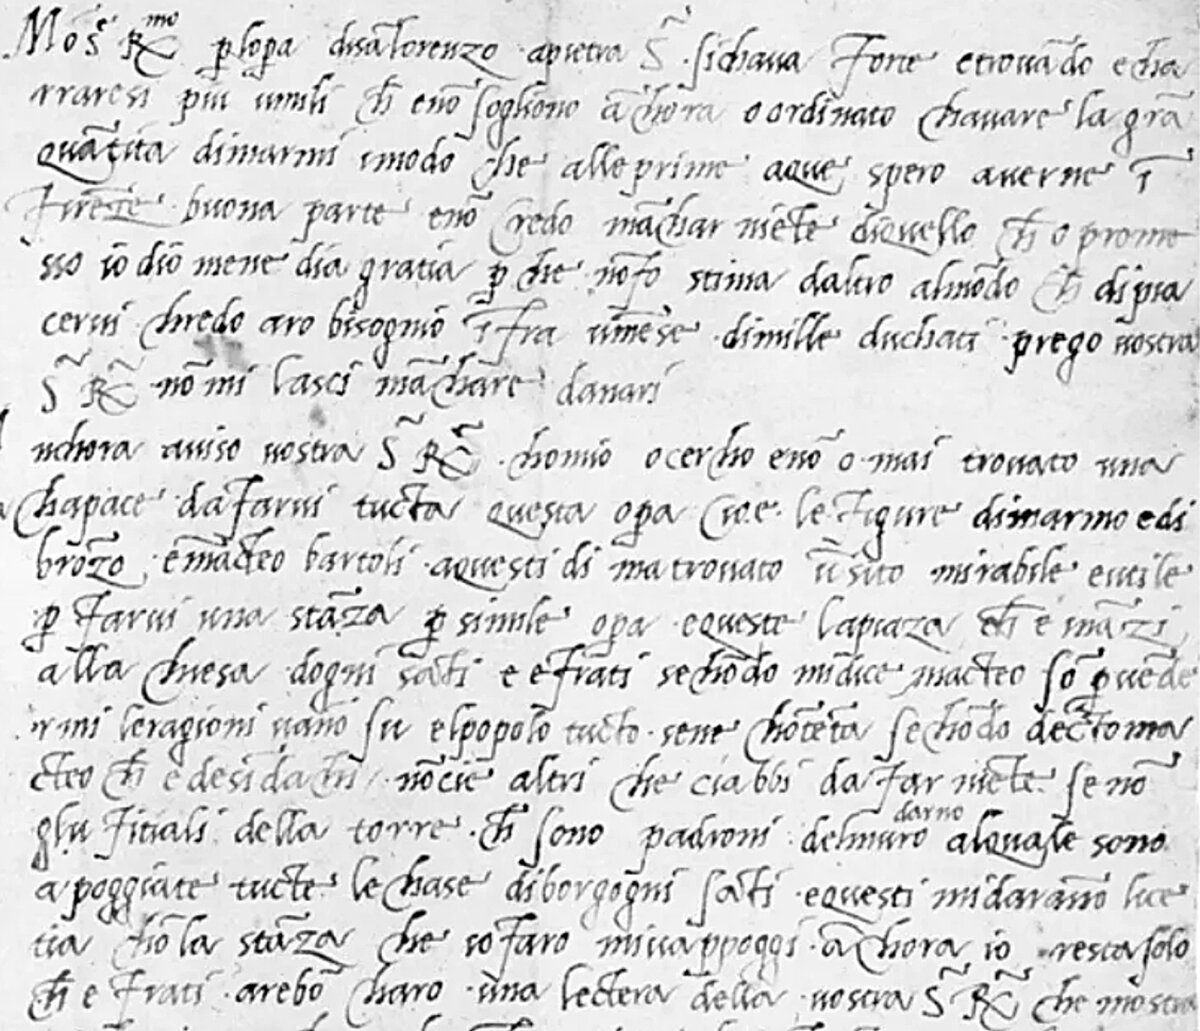 Mōs.re R.mo p lopa di sā lorenzo a pietra Sā si chava forte e trovādo e cha
rraresi piu umili ch e nō sogliono āchora o ordinato chavare la grā
quātita di marmi i modo che alle prime aque spero averne ī
firēze buona parte e nō credo māchar niēte di quello ch o prome
sso io dio mene dia gratia p che nō fo stima daltro al mōdo ch di pia
cervi chredo aro bisognio ī fra u mese di mille duchati prego vostra
S R nō mi lasci māchare danari
nchora aviso vostra S R chomio o cercho e nō o mai trovato una
chapace da farvi tucta questa opa cioe le figure di marmo e di
brōzo e macteo bartoli a questi di ma trovato ū sito mirabile e utile
p farvi una stāza p simile opa e queste la piaza ch e ināzi
alla chiesa dogni sāti e e frati sechōdo mi dice macteo sō p vēde
rmi le ragioni vāno su el popolo tucto sene chōtēta sechōdo decto ma
cteo ch e de sindachi nō cie altri che ci abbi da far niēte se nō
gli ufitiali della torre ch sono padroni del muro darno al quale sono
apoggiate tucte le chase di borgogni sāti e questi mi darāno lice
tia chō la stāza che io faro mi vappoggi āchora io resta solo
ch e frati arebō charo una lectera della vostra S R che mostra